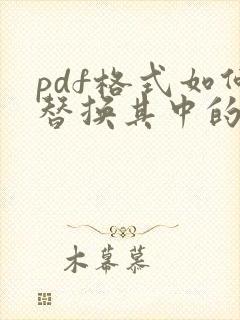 pdf格式如何
替换其中的
木幕慕